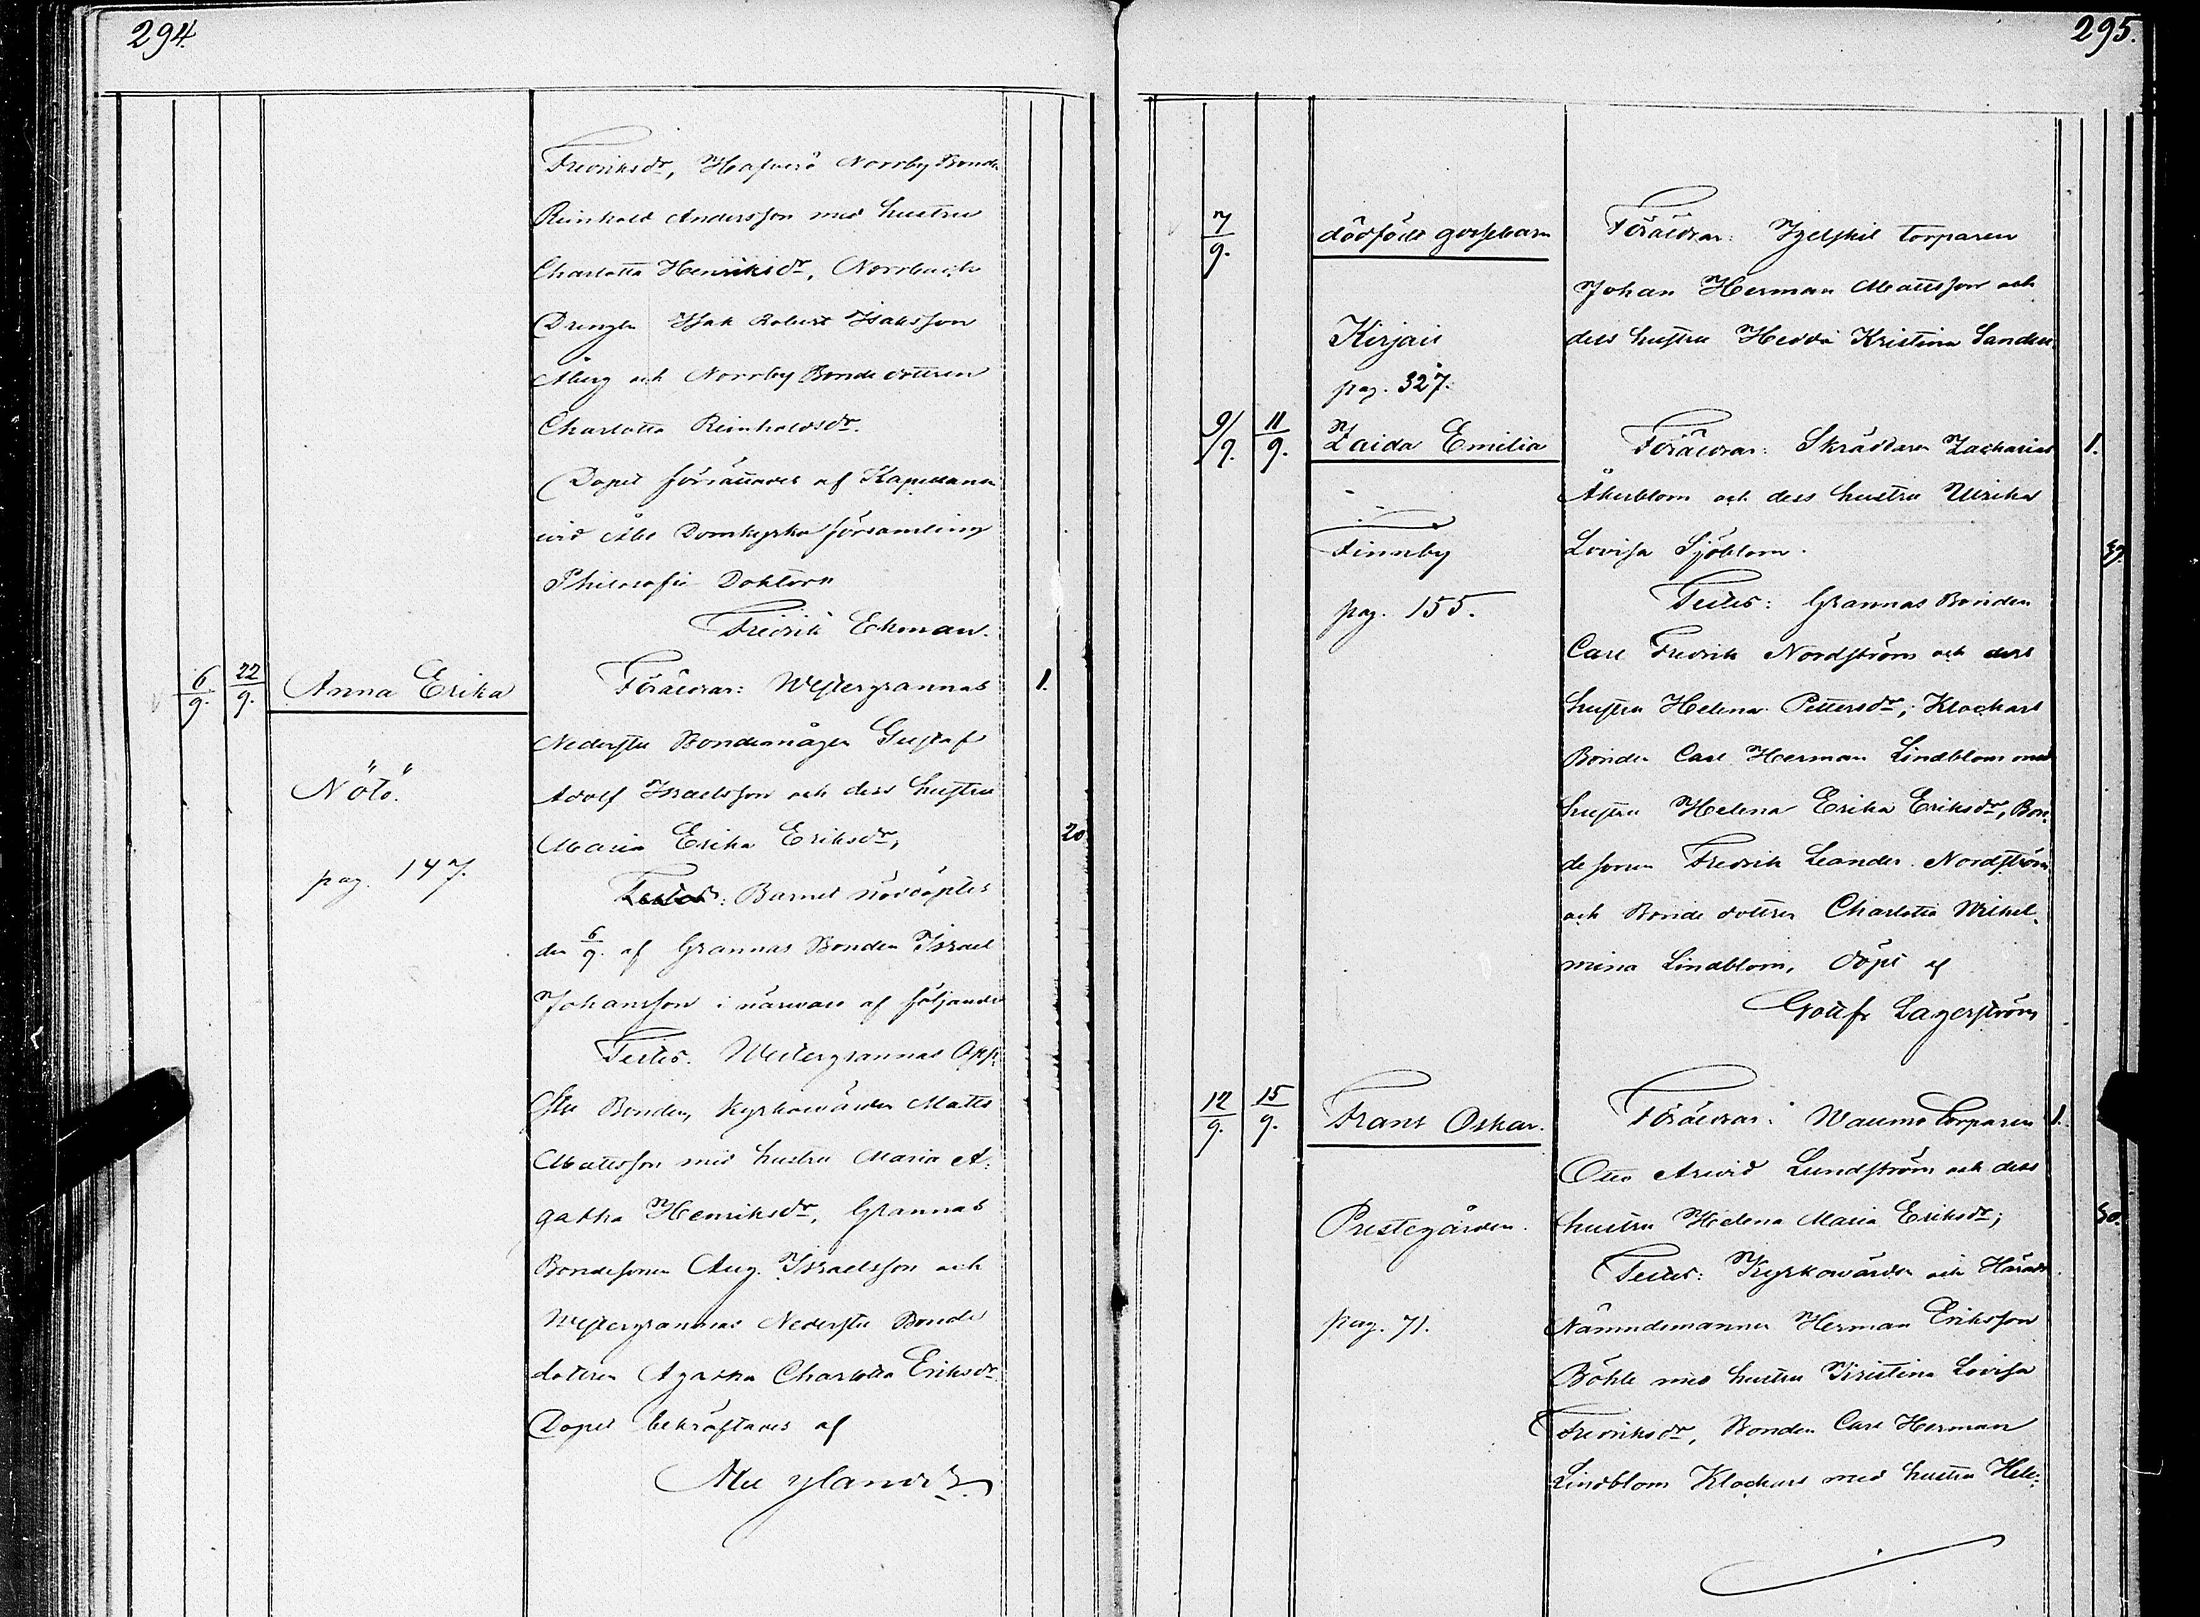 294.
Fredriksdr, Hafverö Norrby Bonde
Reinhold Andersson med hustru
Charlotta Henriksdr, Norrbacka
Drengen Isak Robert Isaksson
Åberg och Norrby Bondedottren
Charlotta Reinholdsdr.
Dopet förrättades af Kapellanen
wid Åbo Domkyrkoförsamling
Philosofie Doktorn
Fredrik Ekman.
6/9. 22/9. Anna Erika
Nötö.
pag. 147.
Föräldrar: Westergrannas 1.
Nederste Bondemågen Gustaf
Adolf Israelsson och dess hustru
Maria Erika Eriksdr, 20.
Testes: Barnet nöddöptes
den 6/9. af Grannas Bonden Israel
Johansson i närwaro af följande
Testes. Westergrannas Öfre
Bonden, Kyrkowärden Matts
Mattsson med hustru Maria A-
gatha Henriksdr, Grannas
Bondesonen Aug. Israelsson och
Westergrannas Nederste Bonde
dottren Agatha Charlotta Eriksdr
Dopet bekräftades af
295.
7/9. dödfödt gossebarn
Kirjais
pag. 327.
Föräldrar: torparen
Johan Herman Mattsson och
dess hustru Hedda Kristina Sander
9/9. 11/9. Zaida Emilia
Finnby
pag. 155.
Föräldrar: Skräddaren Zacharias 1.
Åkerblom och dess hustru Ulrika
Lovisa Sjöblom. 39.
Testes: Grannas Bonden
Carl Fredrik Nordström och dess
hustru Helena Pettersdr, Klockars
Bonden Carl Herman Lindblom med
hustru Helena Erika Eriksdr, Bon-
desonen Fredrik Leander Nordström
och Bondedottren Charlotta Wilhel-
mina Lindblom, döpt af
Gottfr Lagerström
12/9. 15/9. Frans Oskar.
Prestegården.
pag. 71.
Föräldrar: Waumo Torparen 1.
Otto Arwid Lundström och dess
hustru Helena Maria Eriksdr; 30.
Testes: Kyrkowärden och Härads
Nämndemannen Herman Eriksson
Böhle med hustru Kristina Lovisa
Fredriksdr, Bonden Carl Herman
Lindblom Klockars med hustru Hele-